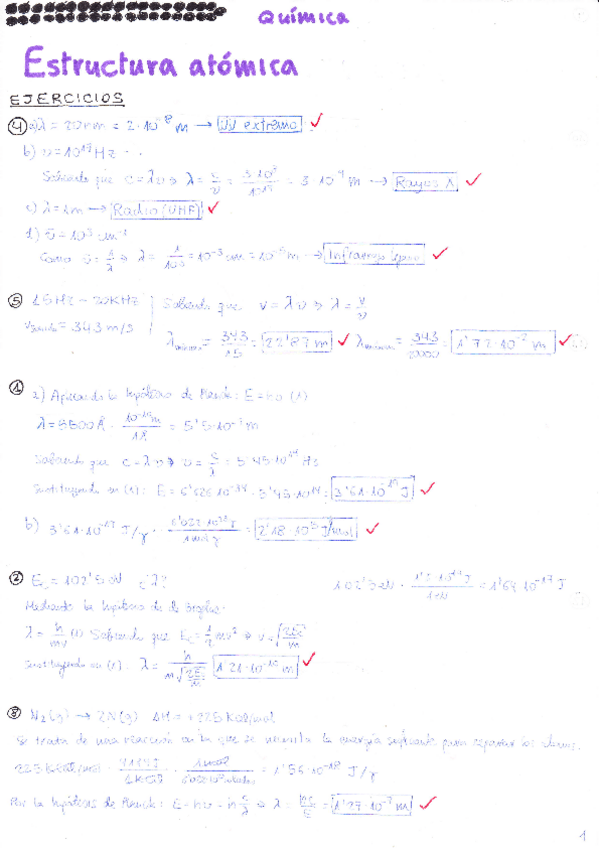 Química
Estructura atómica
EJERCICIOS
④ a) λ = 20nm = 2·10⁻⁸ m → UV extremo ✓
b) υ = 10¹⁷ Hz
Sabiendo que c = λυ → λ = c/υ = 3·10⁸/10¹⁷ = 3·10⁻⁹ m → Rayos X ✓
c) λ = 1m → Radio (VHF) ✓
d) ῡ = 10³ cm⁻¹
Como ῡ = 1/λ → λ = 10⁻³ cm = 10⁻⁵ m → Infrarrojo lejano ✓
⑤ 15Hz – 20KHz Sabiendo que v = λυ → λ = v/υ
v = 343 m/s λ = 343/15 = 22'87 m ✓ λ = 343/20000 = 1'72·10⁻² m ✓
① a) Aplicando la hipótesis de Planck: E = hυ (1)
λ = 5500Å · 10⁻¹⁰m/1Å = 5'5·10⁻⁷ m
Sabiendo que c = λυ → υ = c/λ = 5'45·10¹⁴ Hz
Sustituyendo en (1): E = 5'45·10¹⁴ = 3'61·10⁻¹⁹ J ✓
b) 3'61·10⁻¹⁹ J/γ · = 2'18·10⁵ J/mol ✓
② Ec = 102'5 eV ¿λ? 102'5 eV · = 1'64·10⁻¹⁷ J
Mediante la hipótesis de de Broglie:
λ = h/mv (1) Sabiendo que Ec = 1/2 mv² →
Sustituyendo en (1): λ = 1'21·10⁻¹⁰ m ✓
⑧ N₂(g) → 2N(g) ΔH = +225 Kcal/mol
Se trata de una reacción en la que se necesita la energía suficiente para separar los átomos.
225 Kcal/mol · 1 mol = 1'56·10⁻¹⁸ J/γ
Por la hipótesis de Planck: E = hυ = h c/λ → λ = hc/E = 1'27·10⁻⁷ m ✓
1